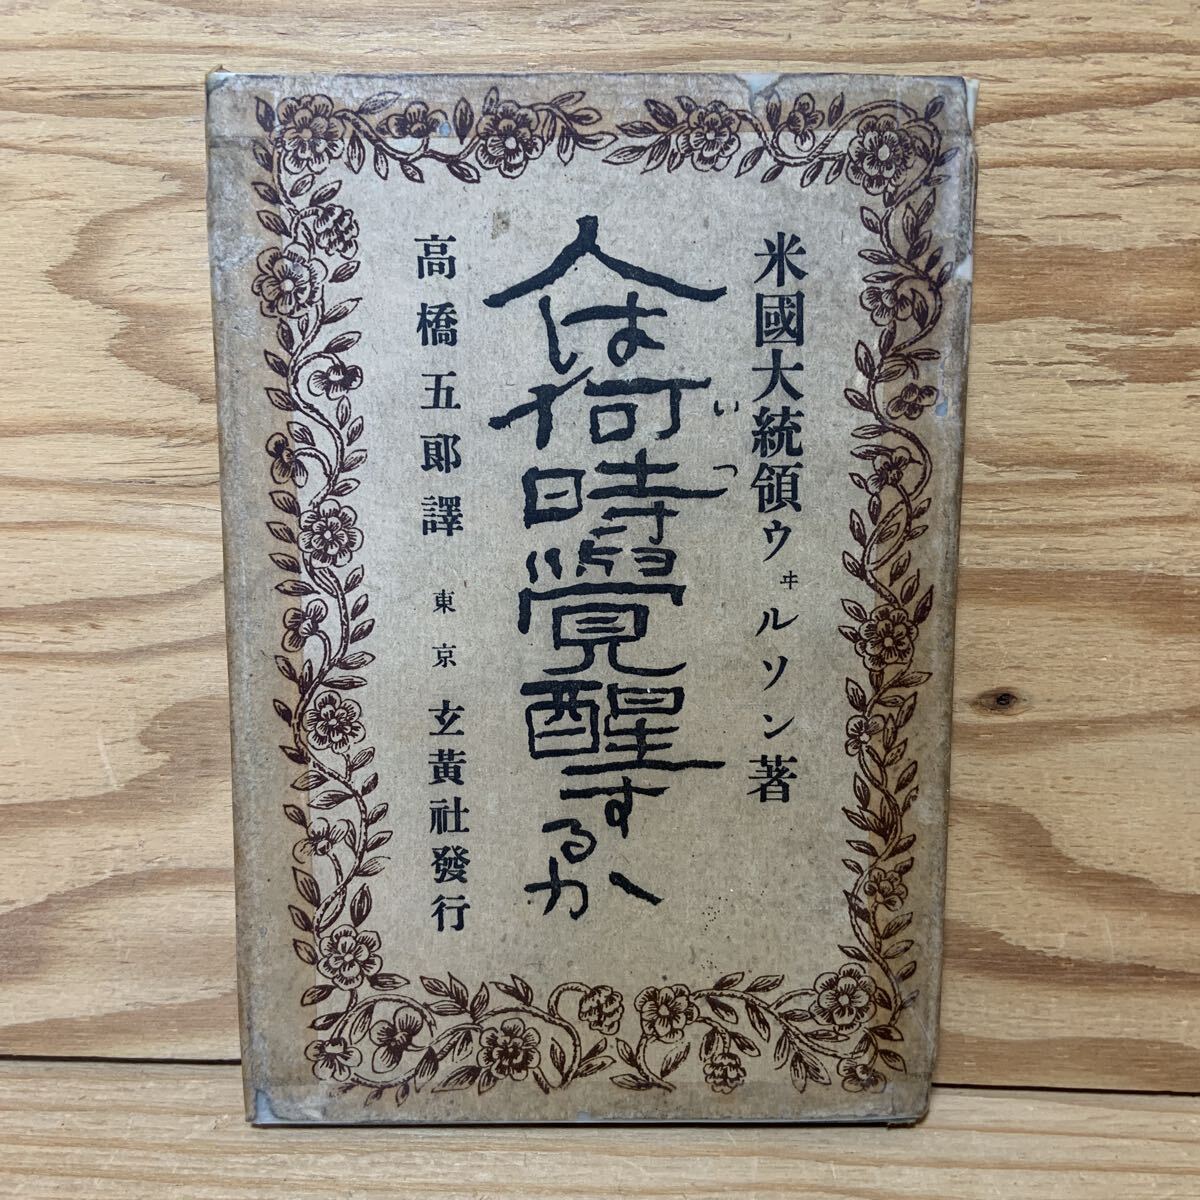 米國大統領ウヰルソン著
人は何時覺醒するか
いつ
高橋五郎譯 東京 玄黃社發行